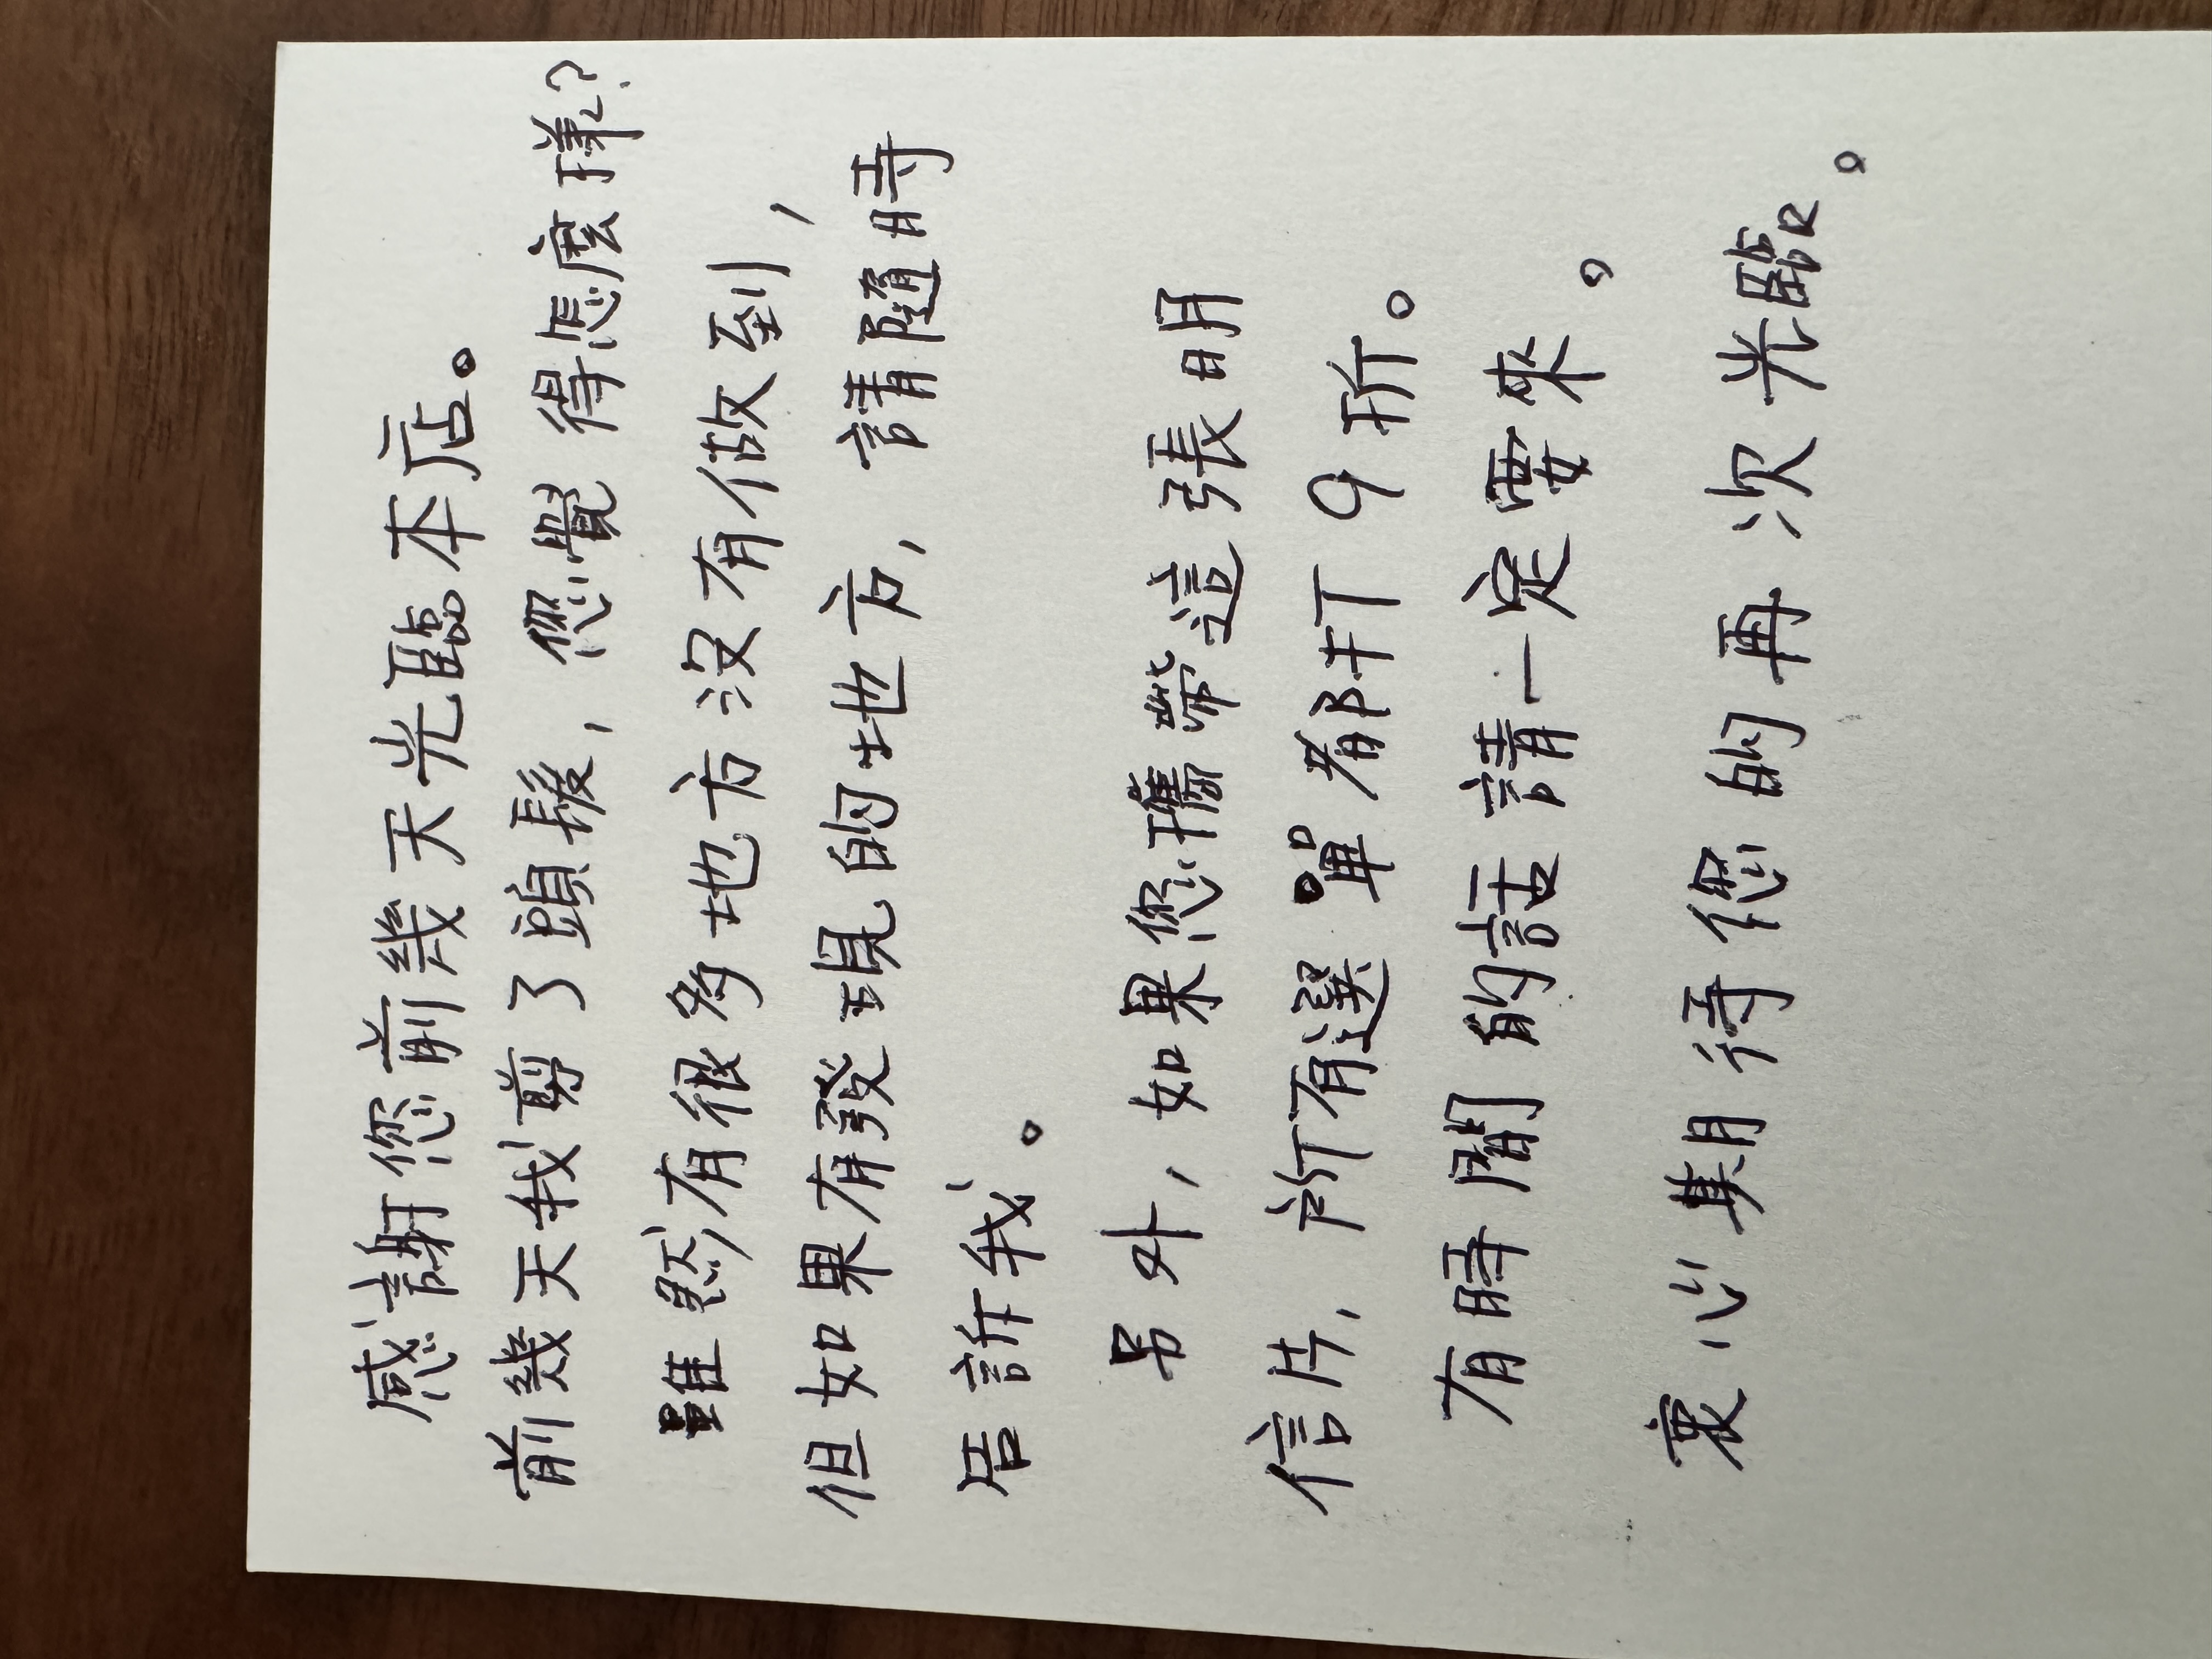 感謝您前幾天光臨本店。
前幾天我剪了頭髮，您覺得怎麼樣？
雖然有很多地方沒有做到，
但如果有發現的地方，請隨時
告訴我。
另外，如果您攜帶這張明
信片，所有選單都打9折。
有時間的話請一定要來。
衷心期待您的再次光臨。